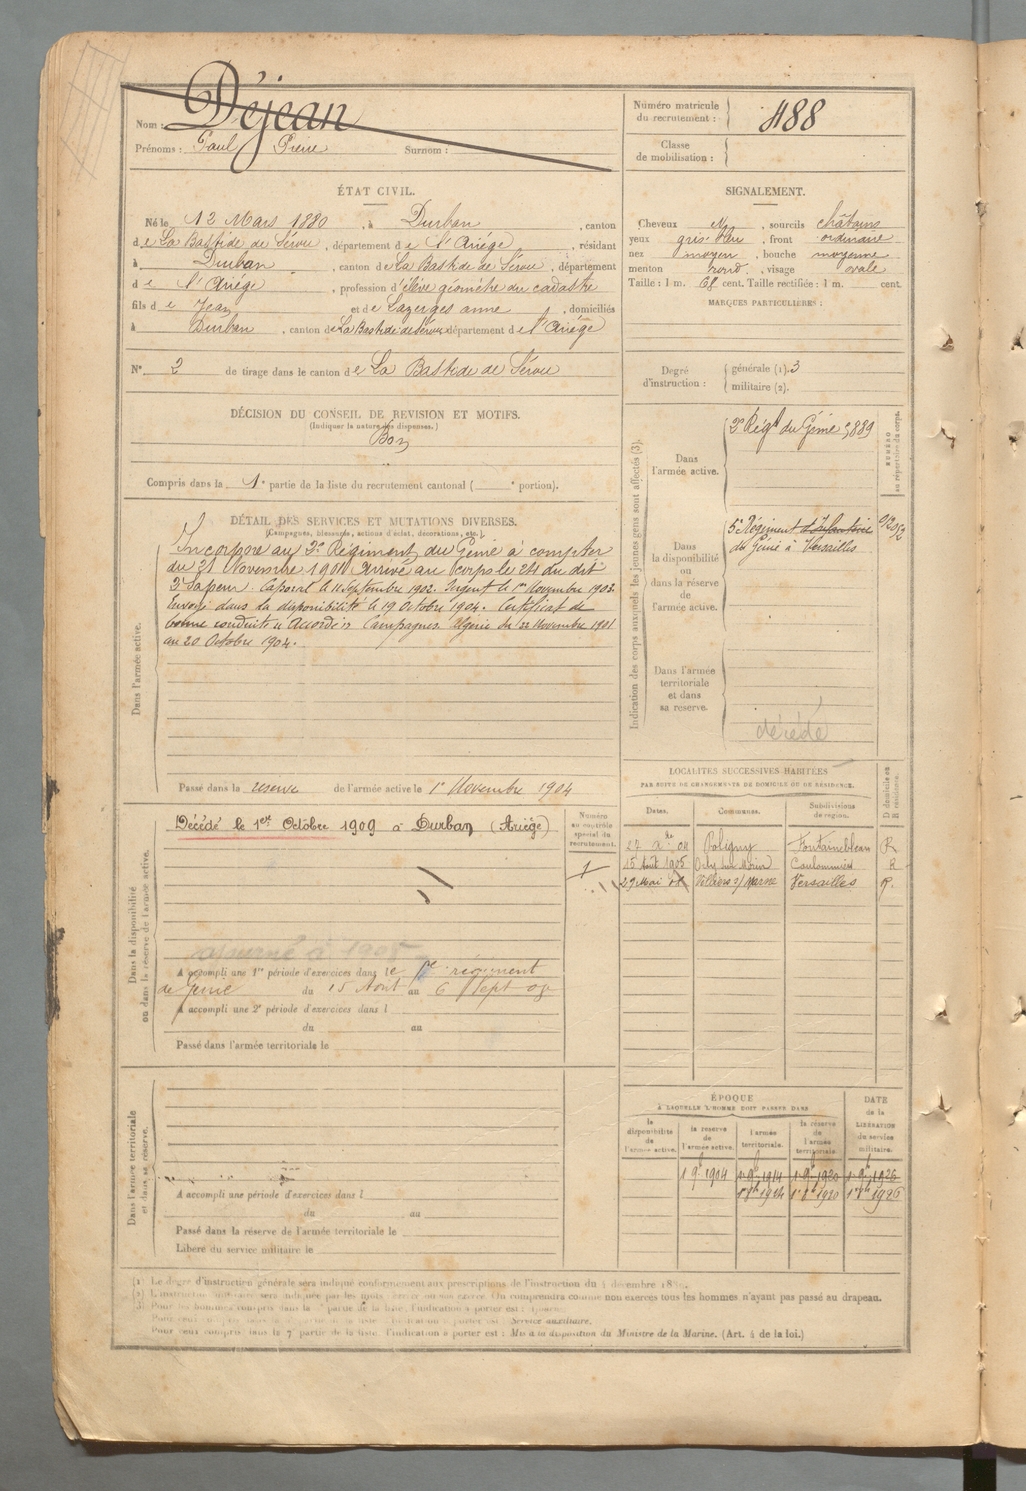 Nom : Déjean
Prénoms : Paul Pierre Surnom :
Numéro matricule
du recrutement : 488
Classe
de mobilisation :
ÉTAT CIVIL.
Né le 12 Mars 1880, à Durban, canton
de La Bastide de Sérou, département de l'Ariége, résidant
à Durban, canton de La Bastide de Sérou, département
de l'Ariége, profession d'élève géomètre du cadastre
fils de Jean et de Lazerges anne, domiciliés
à Durban, canton de La Bastide de Sérou département de l'Ariége
N° 2 de tirage dans le canton de La Bastide de Sérou
SIGNALEMENT.
Cheveux , sourcils châtains
yeux gris bleu, front ordinaire
nez moyen, bouche moyenne
menton rond, visage ovale
Taille : 1 m. 68 cent. Taille rectifiée : 1 m. cent.
MARQUES PARTICULIÈRES :
Degré
d'instruction :
générale (1). 3
militaire (2).
DÉCISION DU CONSEIL DE REVISION ET MOTIFS.
(Indiquer la nature des dispenses.)
Bon
Compris dans la 1e partie de la liste du recrutement cantonal ( e portion).
DÉTAIL DES SERVICES ET MUTATIONS DIVERSES.
(Campagnes, blessures, actions d'éclat, décorations, etc.)
Dans l'armée active.
Incorporé au 2e Régiment du Génie à compter
du 21 Novembre 1901 Arrivé au corps le 21 du dit
2e Sapeur. Caporal le 11 Septembre 1902. Sergent le 1er Novembre 1903.
Envoyé dans la disponibilité le 19 Octobre 1904. Certificat de
bonne conduite "Accordé". Campagnes. Algérie du 22 Novembre 1901
au 20 Octobre 1904.
Passé dans la réserve de l'armée active le 1er Novembre 1904
Indication des corps auxquels les jeunes gens sont affectés (3).
NUMÉRO
au répertoire du corps.
Dans
l'armée active.
2e Régt du Génie 889
Dans
la disponibilité
ou
dans la réserve
de
l'armée active.
5e Régiment d'Infanterie
du Génie à Versailles
Dans l'armée
territoriale
et dans
sa réserve.
décédé
Dans la disponibilité
ou dans la réserve de l'armée active.
Décédé le 1er Octobre 1909 à Durban (Ariège)
Numéro
au contrôle
spécial du
recrutement.
ajourné à 1908
A accompli une 1re période d'exercices dans le régiment
de Génie du 15 Aout au 6 Sept 08
A accompli une 2e période d'exercices dans l
du au
Passé dans l'armée territoriale le
LOCALITÉS SUCCESSIVES HABITÉES
PAR SUITE DE CHANGEMENTS DE DOMICILE OU DE RÉSIDENCE.
Dates. Communes. Subdivisions
de région. D domicile ou
R résidence.
Poligny Fontainebleau R
15 Août 1905 Coulommiers R
29 Mai Villiers s/ Marne Versailles R.
Dans l'armée territoriale
et dans sa réserve.
A accompli une période d'exercices dans l
du au
Passé dans la réserve de l'armée territoriale le
Libéré du service militaire le
ÉPOQUE
À LAQUELLE L'HOMME DOIT PASSER DANS
DATE
de la
LIBÉRATION
du service
militaire.
la
disponibilité
de
l'armée active.
la réserve
de
l'armée active.
l'armée
territoriale.
la réserve
de
l'armée
territoriale.
1 9b 1904 1 9b 1914 1 9b 1920 1 9b 1926
(1) Le degré d'instruction générale sera indiqué conformément aux prescriptions de l'instruction du 4 décembre
On comprendra comme non exercés tous les hommes n'ayant pas passé au drapeau.
Pour les hommes compris dans la partie de la liste, l'indication à porter est :
Service auxiliaire.
Pour ceux compris dans la 7e partie de la liste, l'indication à porter est : Mis à la disposition du Ministre de la Marine. (Art. 4 de la loi.)